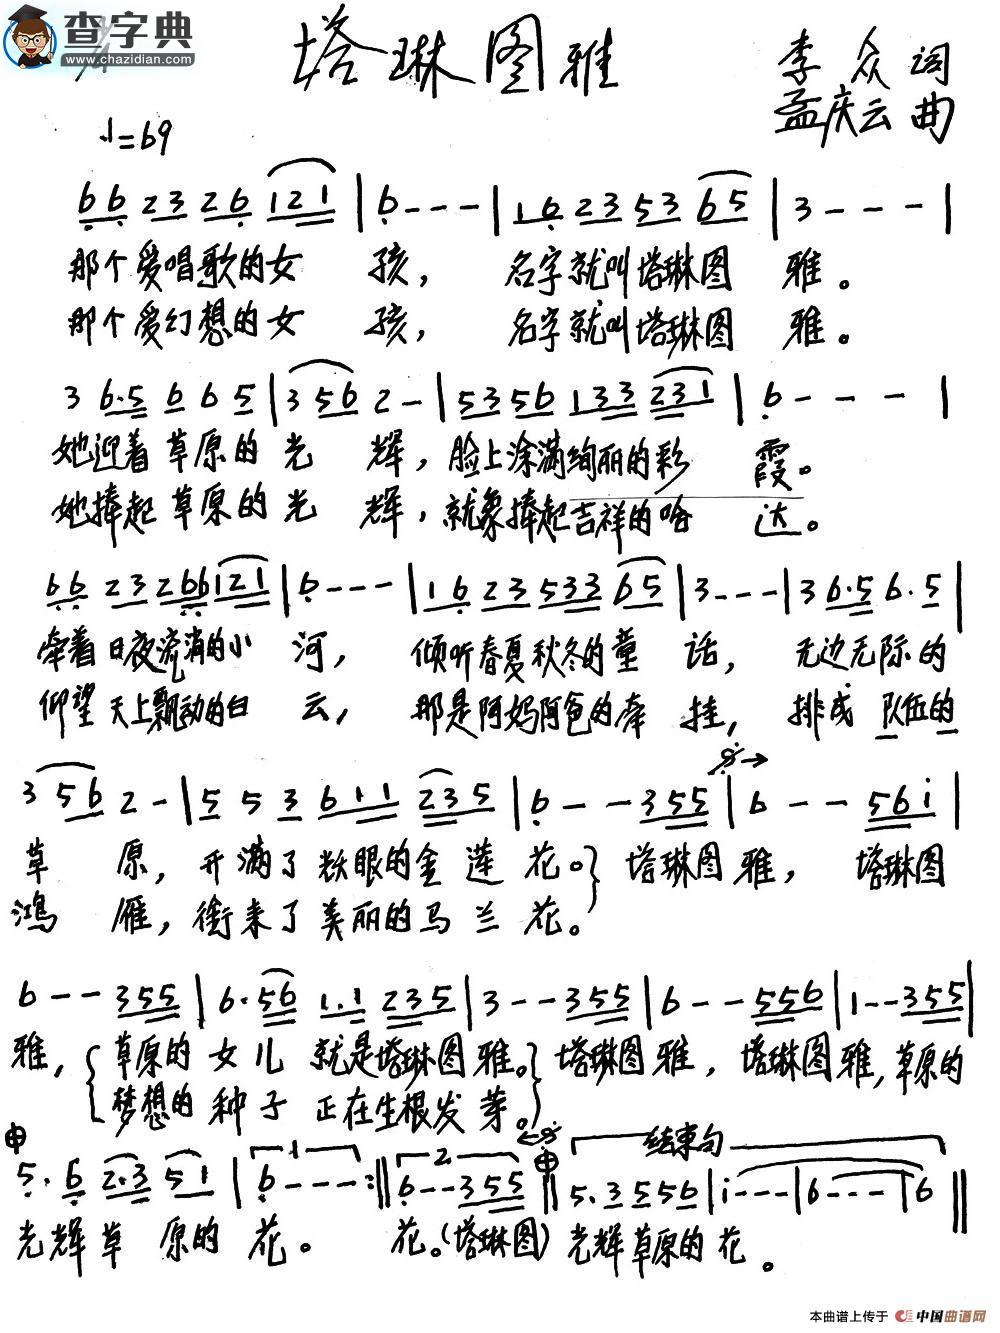 查字典
www.chazidian.com
塔琳图雅
李众词
孟庆云曲
♩=69
6 6 2 3 2 6 1 2 1 | 6 - - - | 1 6 2 3 5 3 6 5 | 3 - - - |
那个爱唱歌的女 孩， 名字就叫塔琳图 雅。
那个爱幻想的女 孩， 名字就叫塔琳图 雅。
3 6·5 6 6 5 | 3 5 6 2 - | 5 3 5 6 1 3 3 2 3 1 | 6 - - - |
她迎着草原的光 辉，脸上涂满绚丽的彩 霞。
她捧起草原的光 辉，就象捧起吉祥的哈 达。
6 6 2 3 2 6 6 1 2 1 | 6 - - - | 1 6 2 3 5 3 3 6 5 | 3 - - - | 3 6·5 6·5 |
牵着日夜流淌的小 河， 倾听春夏秋冬的童 话， 无边无际的
仰望天上飘动的白 云， 那是阿妈阿爸的牵 挂， 排成队伍的
3 5 6 2 - | 5 5 3 6 1 1 2 3 5 | 6 - - 3 5 5 | 6 - - 5 6 i |
草 原，开满了耀眼的金莲花。 塔琳图雅， 塔琳图
鸿 雁，衔来了美丽的马兰花。
6 - - 3 5 5 | 6·5 6 1·1 2 3 5 | 3 - - 3 5 5 | 6 - - 5 5 6 | 1 - - 3 5 5 |
雅， 草原的女儿 就是塔琳图雅。 塔琳图雅，塔琳图雅，草原的
梦想的种子 正在生根发芽。
5·6 2·3 5 1 | 1 6 - - - :‖ 2 6 - - 3 5 5 ‖ 结束句 5·3 5 5 6 | i - - - | 6 - - - | 6 ‖
光辉草 原的 花。 花。(塔琳图) 光辉草原的花。
本曲谱上传于 中国曲谱网